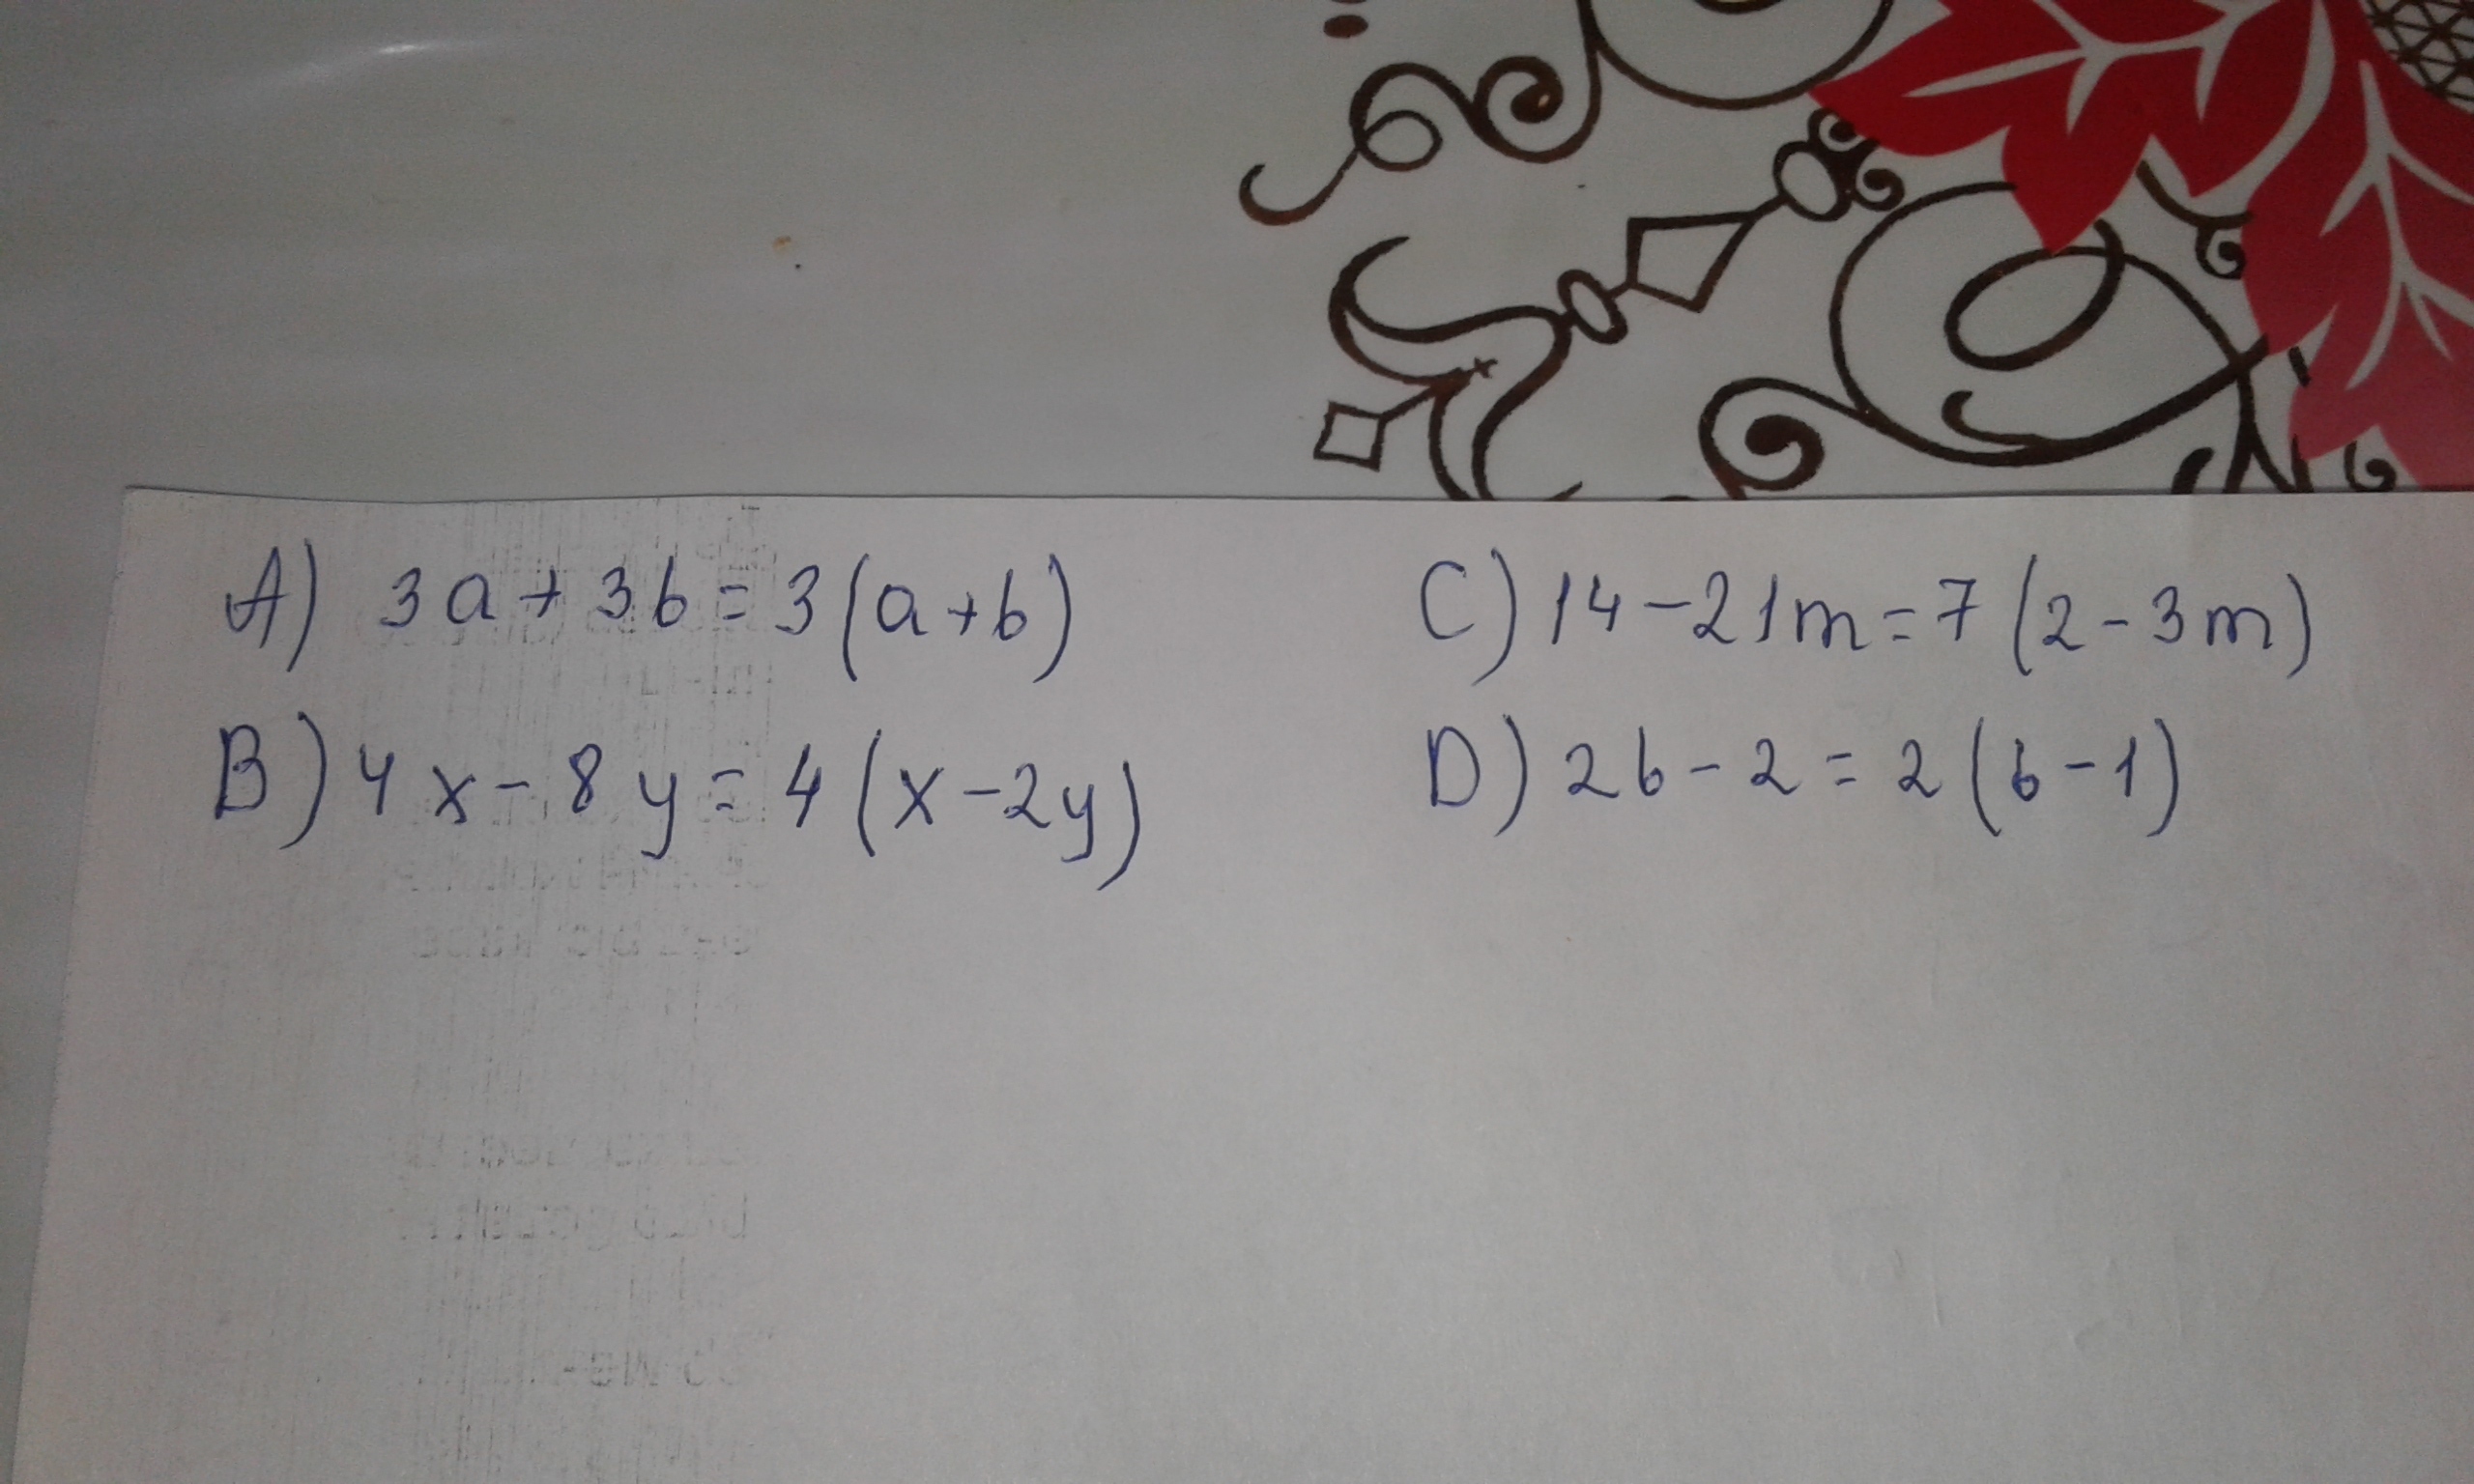 A) 3a+3b=3(a+b)
B) 4x-8y=4(x-2y)
C) 14-21m=7(2-3m)
D) 2b-2=2(b-1)